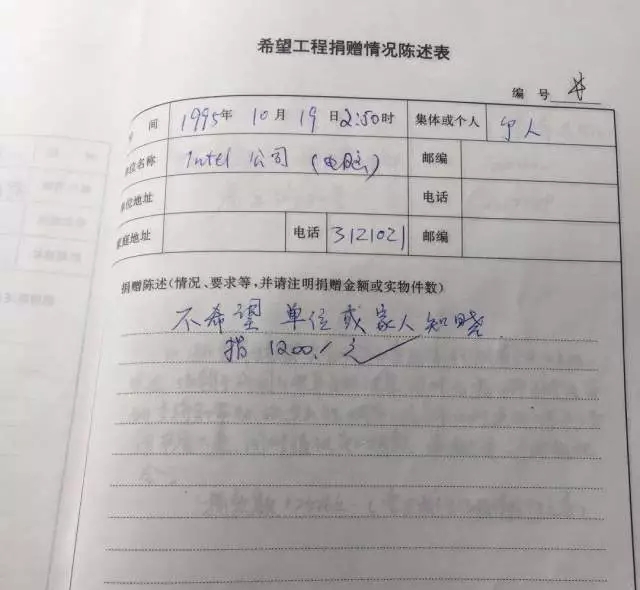 希望工程捐赠情况陈述表
编号
间 1995年 10月 19日 2:50时 集体或个人 个人
单位名称 Intel 公司 (电脑) 邮编
单位地址 电话
家庭地址 电话 3121021 邮编
捐赠陈述(情况、要求等,并请注明捐赠金额或实物件数)
不希望 单位或家人知晓
捐 1200./元